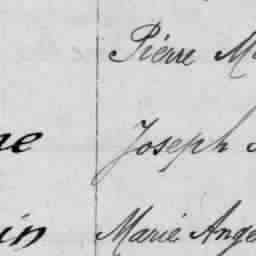 Pierre M
Joseph
Marie Ange